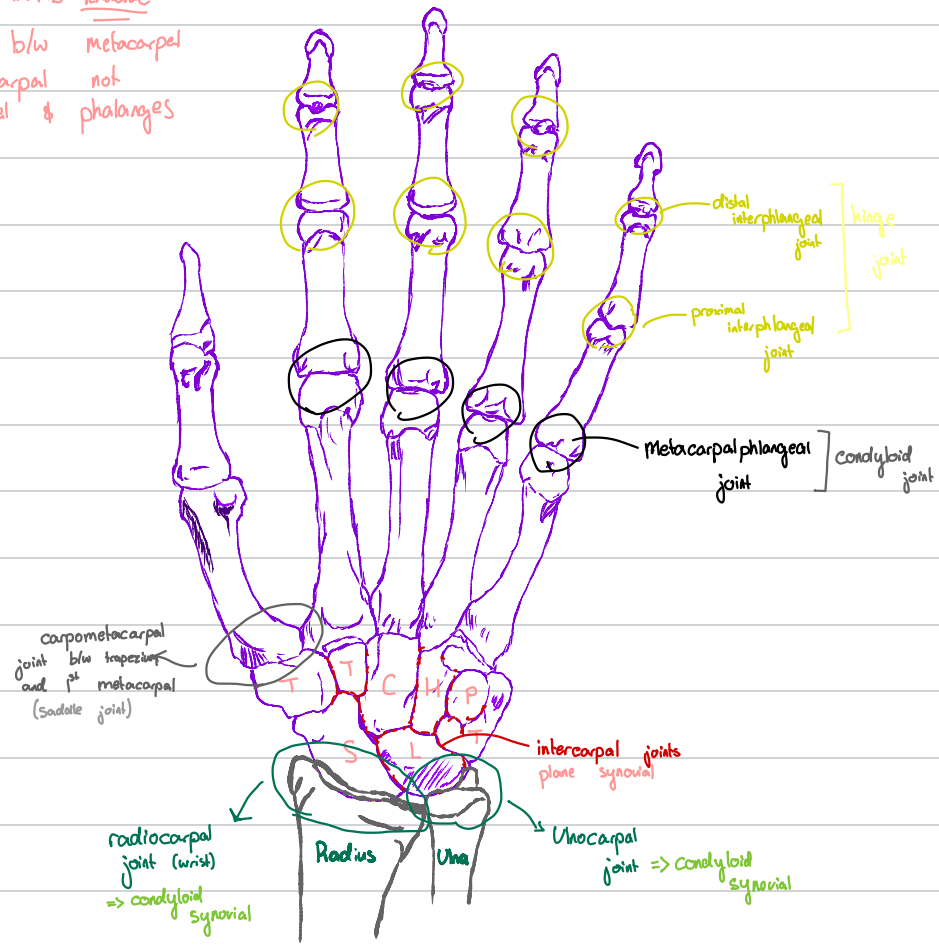 b/w metacarpal
not
& phalanges
distal
interphlangeal
joint
hinge
joint
proximal
interphlangeal
joint
Metacarpalphlangeal
joint
condyloid
joint
carpometacarpal
joint b/w trapezium
and 1st metacarpal
(saddle joint)
T
T
C
H
P
T
S
L
intercarpal joints
plane synovial
radiocarpal
joint (wrist)
=> condyloid
synovial
Radius
Ulna
Ulnocarpal
joint => condyloid
synovial